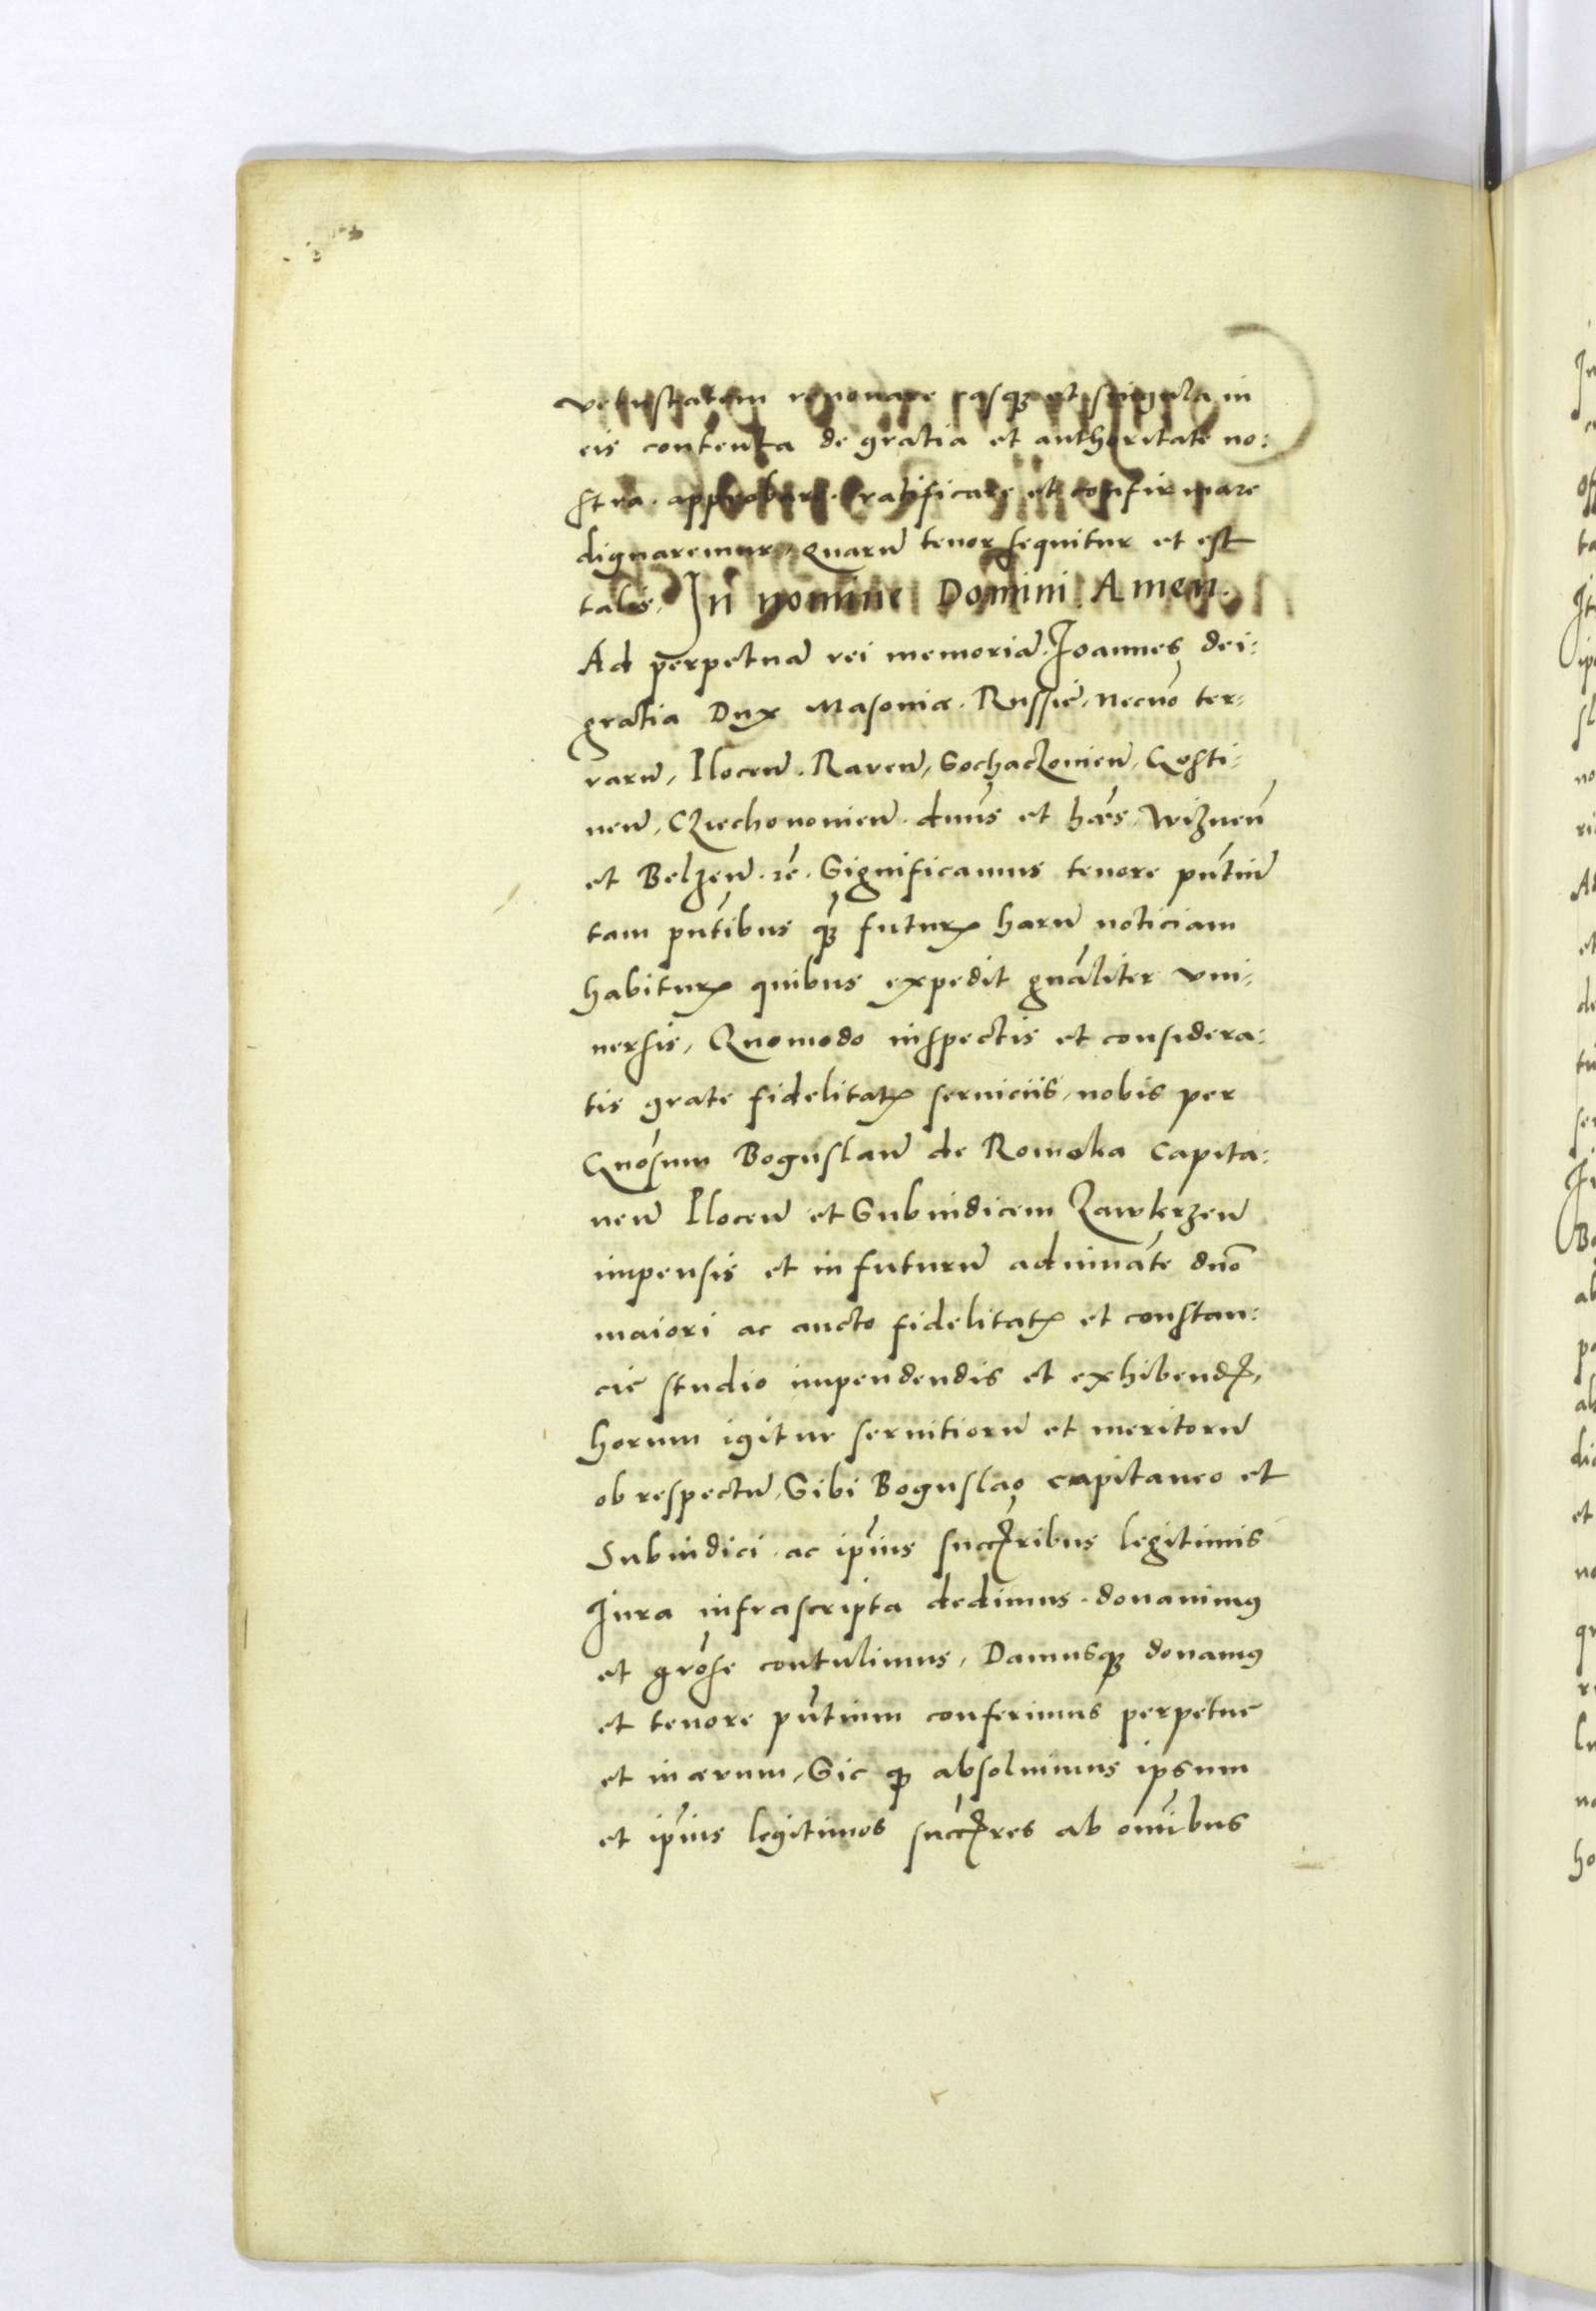 vetustatem renouare easq3 et singula in
eis contenta de gratia et authoritate no:
stra. approbare. ratificare et confirmare
dignaremur, Quarū tenor sequitur et est
talis, In nomine Domini Amen.
Ad perpetuā rei memoriā. Joannes dei:
gratia Dux Masouiæ. Russiē. necnō ter:
rarū, Plocen̄. Raven̄, Sochaczouien̄, Gosti:
nen̄, Cziechonouien̄. dnūs et hæs. Wiznen̄
et Belzen̄. ⁊c̄. Significamus tenore pn̄tiū
tam pn̄tibus q̄3 futurꝭ harū noticiam
habiturꝭ quibus expedit gnāliter vni:
uersis, Quomodo inspectis et considera:
tis grate fidelitatꝭ seruiciis, nobis per
Gnōsum Boguslaū de Romoka Capita:
neū Plocen̄ et Subiudicem Zawkrzen̄
impensis et in futurū adiuuāte dnō
maiori ac aucto fidelitatꝭ et constan:
cie studio impendendis et exhibendꝭ,
horum igitur seruitiorū et meritorū
ob respectū, Sibi Boguslao capitaneo et
Subiudici. ac ip̄ius succꝭribus legitimis
Jura infrascripta dedimus. donauimꝰ
et grōse contulimus, Damusq3 donamꝰ
et tenore pn̄tium conferimus perpetue
et in æuum, Sic ꝙ absoluimus ipsum
et ip̄ius legitimos succꝭres ab omībus